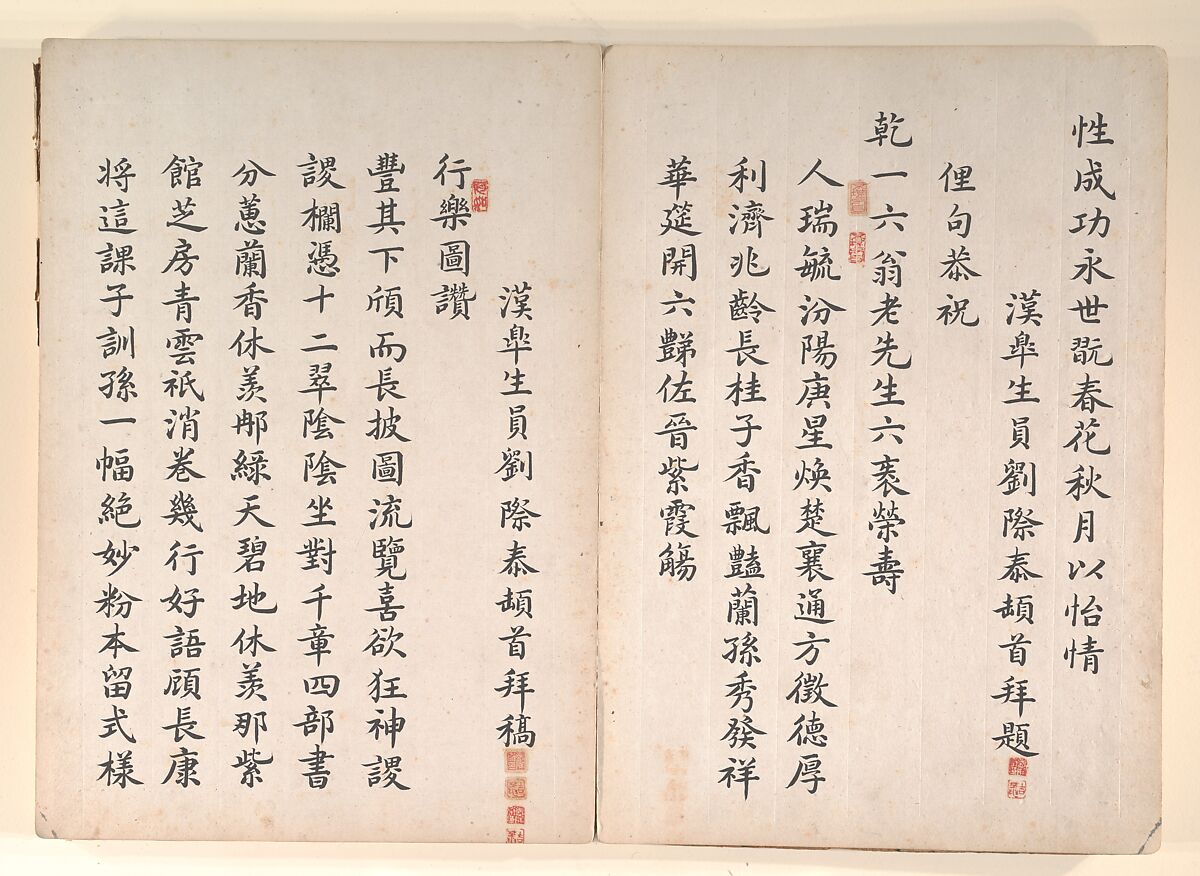 性成功永世既春花秋月以怡情
漢皐生員劉際泰頓首拜題
俚句恭祝
乾一六翁老先生六袠榮壽
人瑞毓汾陽庚星煥楚襄通方徵德厚
利濟兆齡長桂子香飄豔蘭孫秀發祥
華筵開六豑佐晉紫霞觴
漢皐生員劉際泰頓首拜稿
行樂圖讚
豐其下頎而長披圖流覽喜欲狂神謖
謖欄憑十二翠陰陰坐對千章四部書
分蔥蘭香休羨那綠天碧地休羨那紫
館芝房青雲祇消卷幾行好語頋長康
將這課子訓孫一幅絕妙粉本留式樣